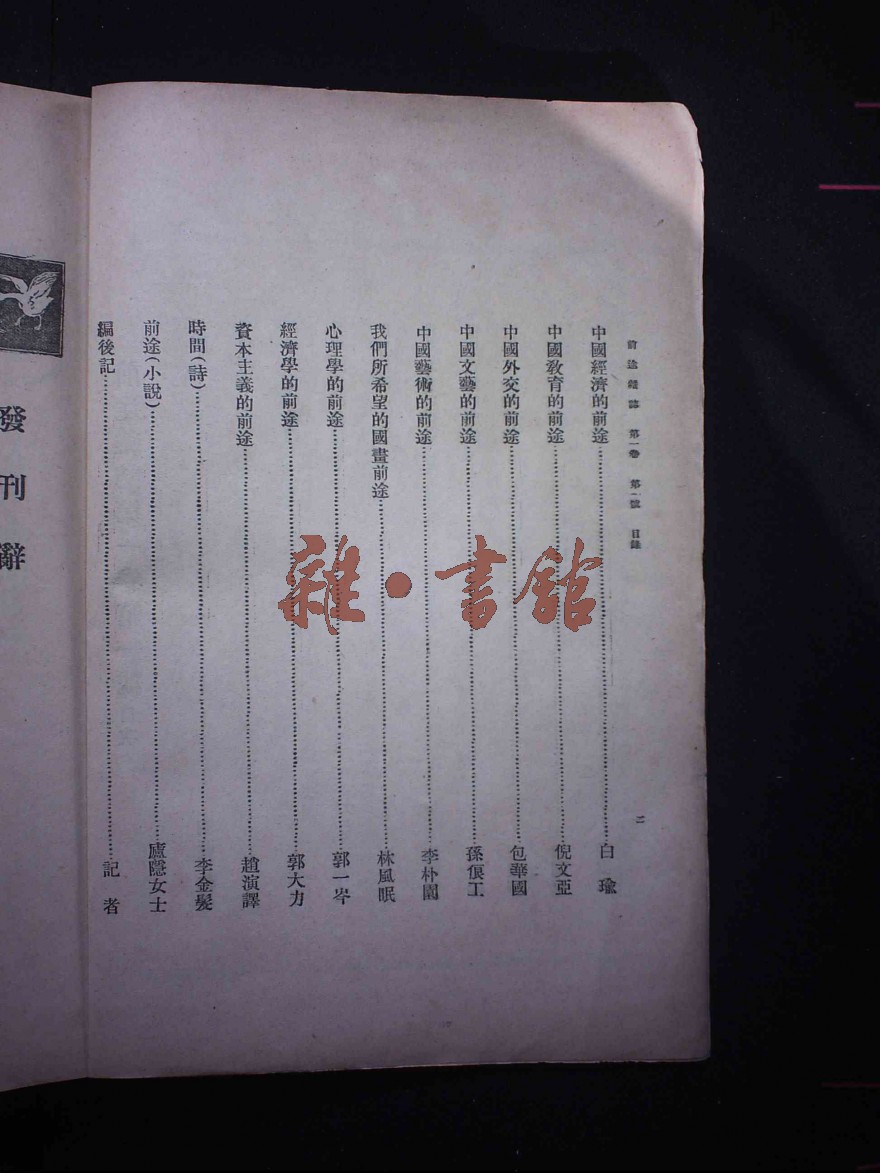 前途雜誌 第一卷 第一號 目錄
二
中國經濟的前途……白瑜
中國教育的前途……倪文亞
中國外交的前途……包華國
中國文藝的前途……孫俍工
中國藝術的前途……李朴園
我們所希望的國畫前途……林風眠
心理學的前途……郭一岑
經濟學的前途……郭大力
資本主義的前途……趙演譯
時間(詩)……李金髮
前途(小說)……廬隱女士
編後記……記者
發刊辭
雜·書館